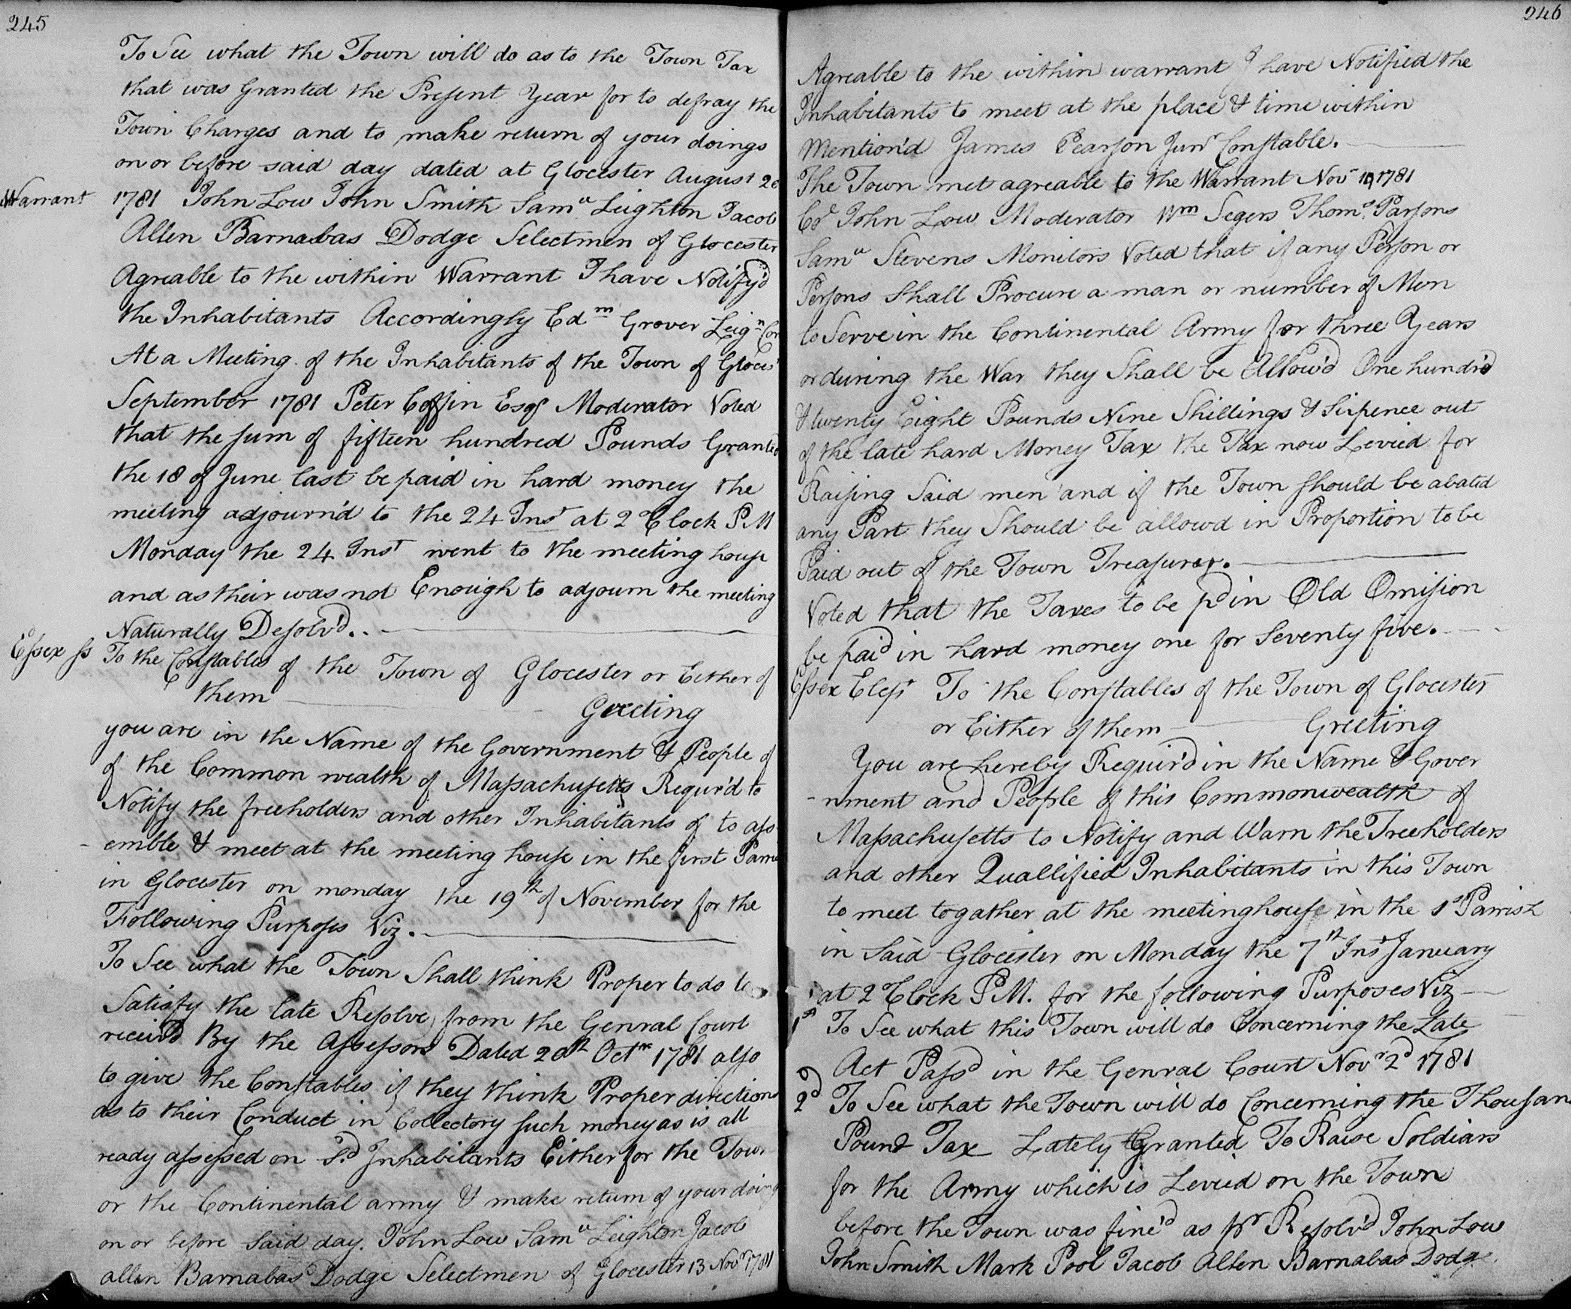 245
To See what the Town will do as to the Town Tax
that was Granted the Present Year for to defray the
Town Charges and to make return of your doings
on or before said day dated at Glocester August 20
Warrant 1781 John Low John Smith Sam.ll Leighton Jacob
Allen Barnabas Dodge Selectmen of Glocester
Agreable to the within Warrant I have Notify'd
the Inhabitants Accordingly Edm Grover Leign Con
At a Meeting of the Inhabitants of the Town of Gloces
September 1781 Peter Coffin Esqr Moderator Voted
that the sum of fifteen hundred Pounds Grante
the 18 of June last be paid in hard money the
meeting adjourn'd to the 24 Inst at 2 Clock P.M
Monday the 24 Inst went to the meeting house
and as their was not Enough to adjourn the meeting
Naturally Desolv'd..
Essex ss To the Constables of the Town of Glocester or Either of
them Greeting
you are in the Name of the Government & People of
of the Common wealth of Massachusetts Requr'd to
Notify the freeholders and other Inhabitants of to ass
-emble & meet at the meeting house in the first Parri
in Glocester on monday the 19th of November for the
Following Purposes Viz.
To See what the Town Shall think Proper to do to
Satisfy the late Resolve from the Genral Court
receiv'd By the Assessors Dated 20th Octr 1781 also
to give the Constables if they think Proper directions
as to their Conduct in Collectory such money as is all
ready assessed on sd Inhabitants Either for the Town
or the Continental army & make return of your doing
on or before Said day. John Low Sam.ll Leighton Jacob
allen Barnabas Dodge Selectmen of Glocester 13 Novr 1781
246
Agreable to the within warrant I have Notified the
Inhabitants to meet at the place & time within
Mention'd James Pearson Junr Constable.
The Town met agreable to the Warrant Novr 19 1781
Col John Low Moderator Wm Segers Thoms Parsons
Samll Stevens Monitors Voted that if any Person or
Persons Shall Procure a man or number of Men
to Serve in the Continental Army for three Years
or during the War they Shall be Allow'd One hundr'd
& twenty Eight Pounds Nine Shillings & Sixpence out
of the late hard Money Tax the Tax now Levied for
Raising Said men and if the Town should be abated
any Part they Should be allowd in Proportion to be
Paid out of the Town Treasurer.
Voted that the Taxes to be pd in Old Omission
be paid in hard money one for Seventy five.
Essex To the Constables of the Town of Glocester
or Either of them Greeting
You are hereby Requir'd in the Name & Gover
-nment and People of this Commonwealth of
Massachusetts to Notify and Warn the Freeholders
and other Quallified Inhabitants in this Town
to meet togather at the meetinghouse in the 1st Parrish
in Said Glocester on Monday the 7th Inst January
at 2 Clock P.M. for the following Purposes Viz
1st To See what this Town will do Concerning the Late
Act Pass'd in the Genral Court Novr 2d 1781
2d To See what the Town will do Concerning the Thousan
Pound Tax Lately Granted To Raise Soldiars
for the Army which is Levied on the Town
before the Town was fine'd as pr Resolv'd John Low
John Smith Mark Pool Jacob Allen Barnabas Dodge